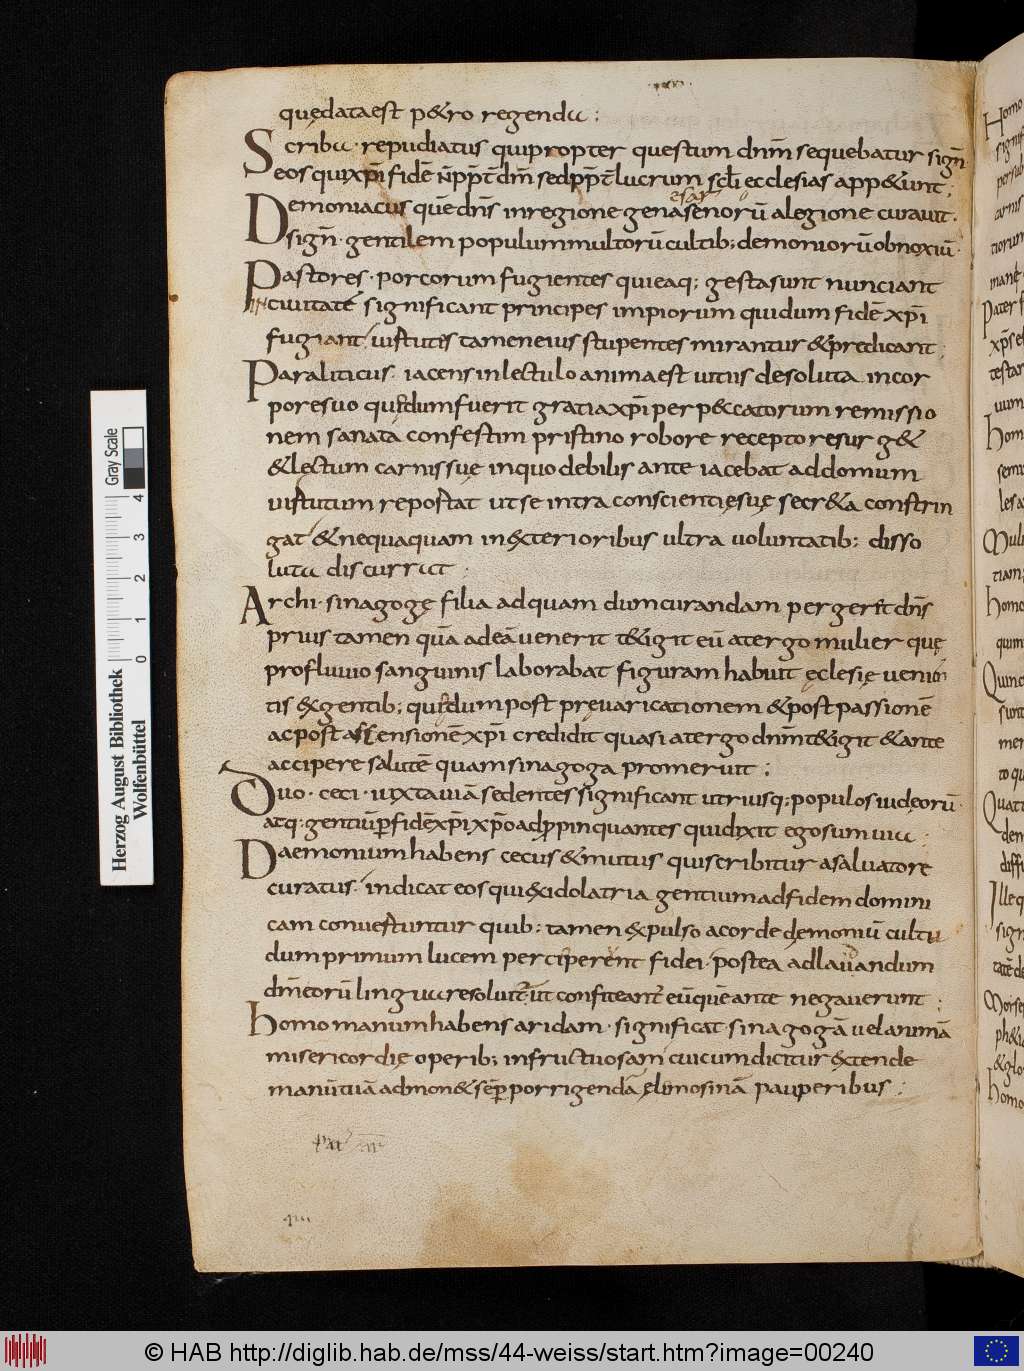 quędataest p&ro regenda :
Scriba · repudiatus quipropter questum dnm̄ sequebatur sign̄
eos quixp̄i fidē n̄ pp̄t dm̄ sedpp̄t lucrum scl̄i ecclesias app&unt ;
Demoniacus quēdn̄s inregione genasenorū alegione curauit .
sign̄ · gentilem populummultorū cultib; demoniorū obnoxiū ·
Pastores · porcorum fugientes quieaq; gestasunt nunciant
IN ciuitatē significant principes impiorum quidum fidē xp̄i
fugiant uirtutis tameneius stupentes mirantur &predicant ;
Paraliticus · iacens inlectulo animaest uitiis desoluta incor
poresuo quędumfuerit gratiaxp̄i per p&ccatorum remissio
nem sanata confestim pristino robore receptoresurg&
&lectum carnissuę inquodebilis ante iacebat addomum
uirtutum reportat utse intra conscientięsuę secr&a constrin
gat &nequaquam in&terioribus ultra uoluntatib; disso
luta discurrat ·
Archi · sinagogę filia adquam dumcurandam pergerit dn̄s
prius tamen quā adeā uenerit t&igit eū atergo mulier quę
profluuio sanguinis laborabat figuram habuit ęclesię uenien
tis &gentib; quędumpost pręuaricationem &postpassionē
acpost assensionē xp̄i credidit quasi atergo dnm̄ t&igit &ante
accipere salutē quamsinagoga promeruit ;
Duo · ceci · iuxtauiā sedentes significant utriusq; populos iudęorū ·
atq; gentiū p̱ fidē xp̄i xp̄o adp̱pinquantes quidixit egosumuia ·
Daemoniumhabens cecus &mutus quiscribitur asaluatore
curatus · indicat eos qui&idolatria gentiumadfidem domini
cam conuertuntur quib; tamen &pulso acorde dęmoniū cultu
dum primum lucem perciperent fidei · postea adlaudandum
dm̄ eorū lingua resoluit̄ ut confiteant̄ eū quē ante negauerunt :
Homo manumhabens aridam · significat · sinagogā uel animā
misericordię operib; infructuosam cuicumdicitur &tende
manūtuā admon&sēp̱ porrigendā ęlimosinā pauperibus ;
Herzog August Bibliothek
Wolfenbüttel
Gray Scale
0 1 2 3 4
© HAB http://diglib.hab.de/mss/44-weiss/start.htm?image=00240